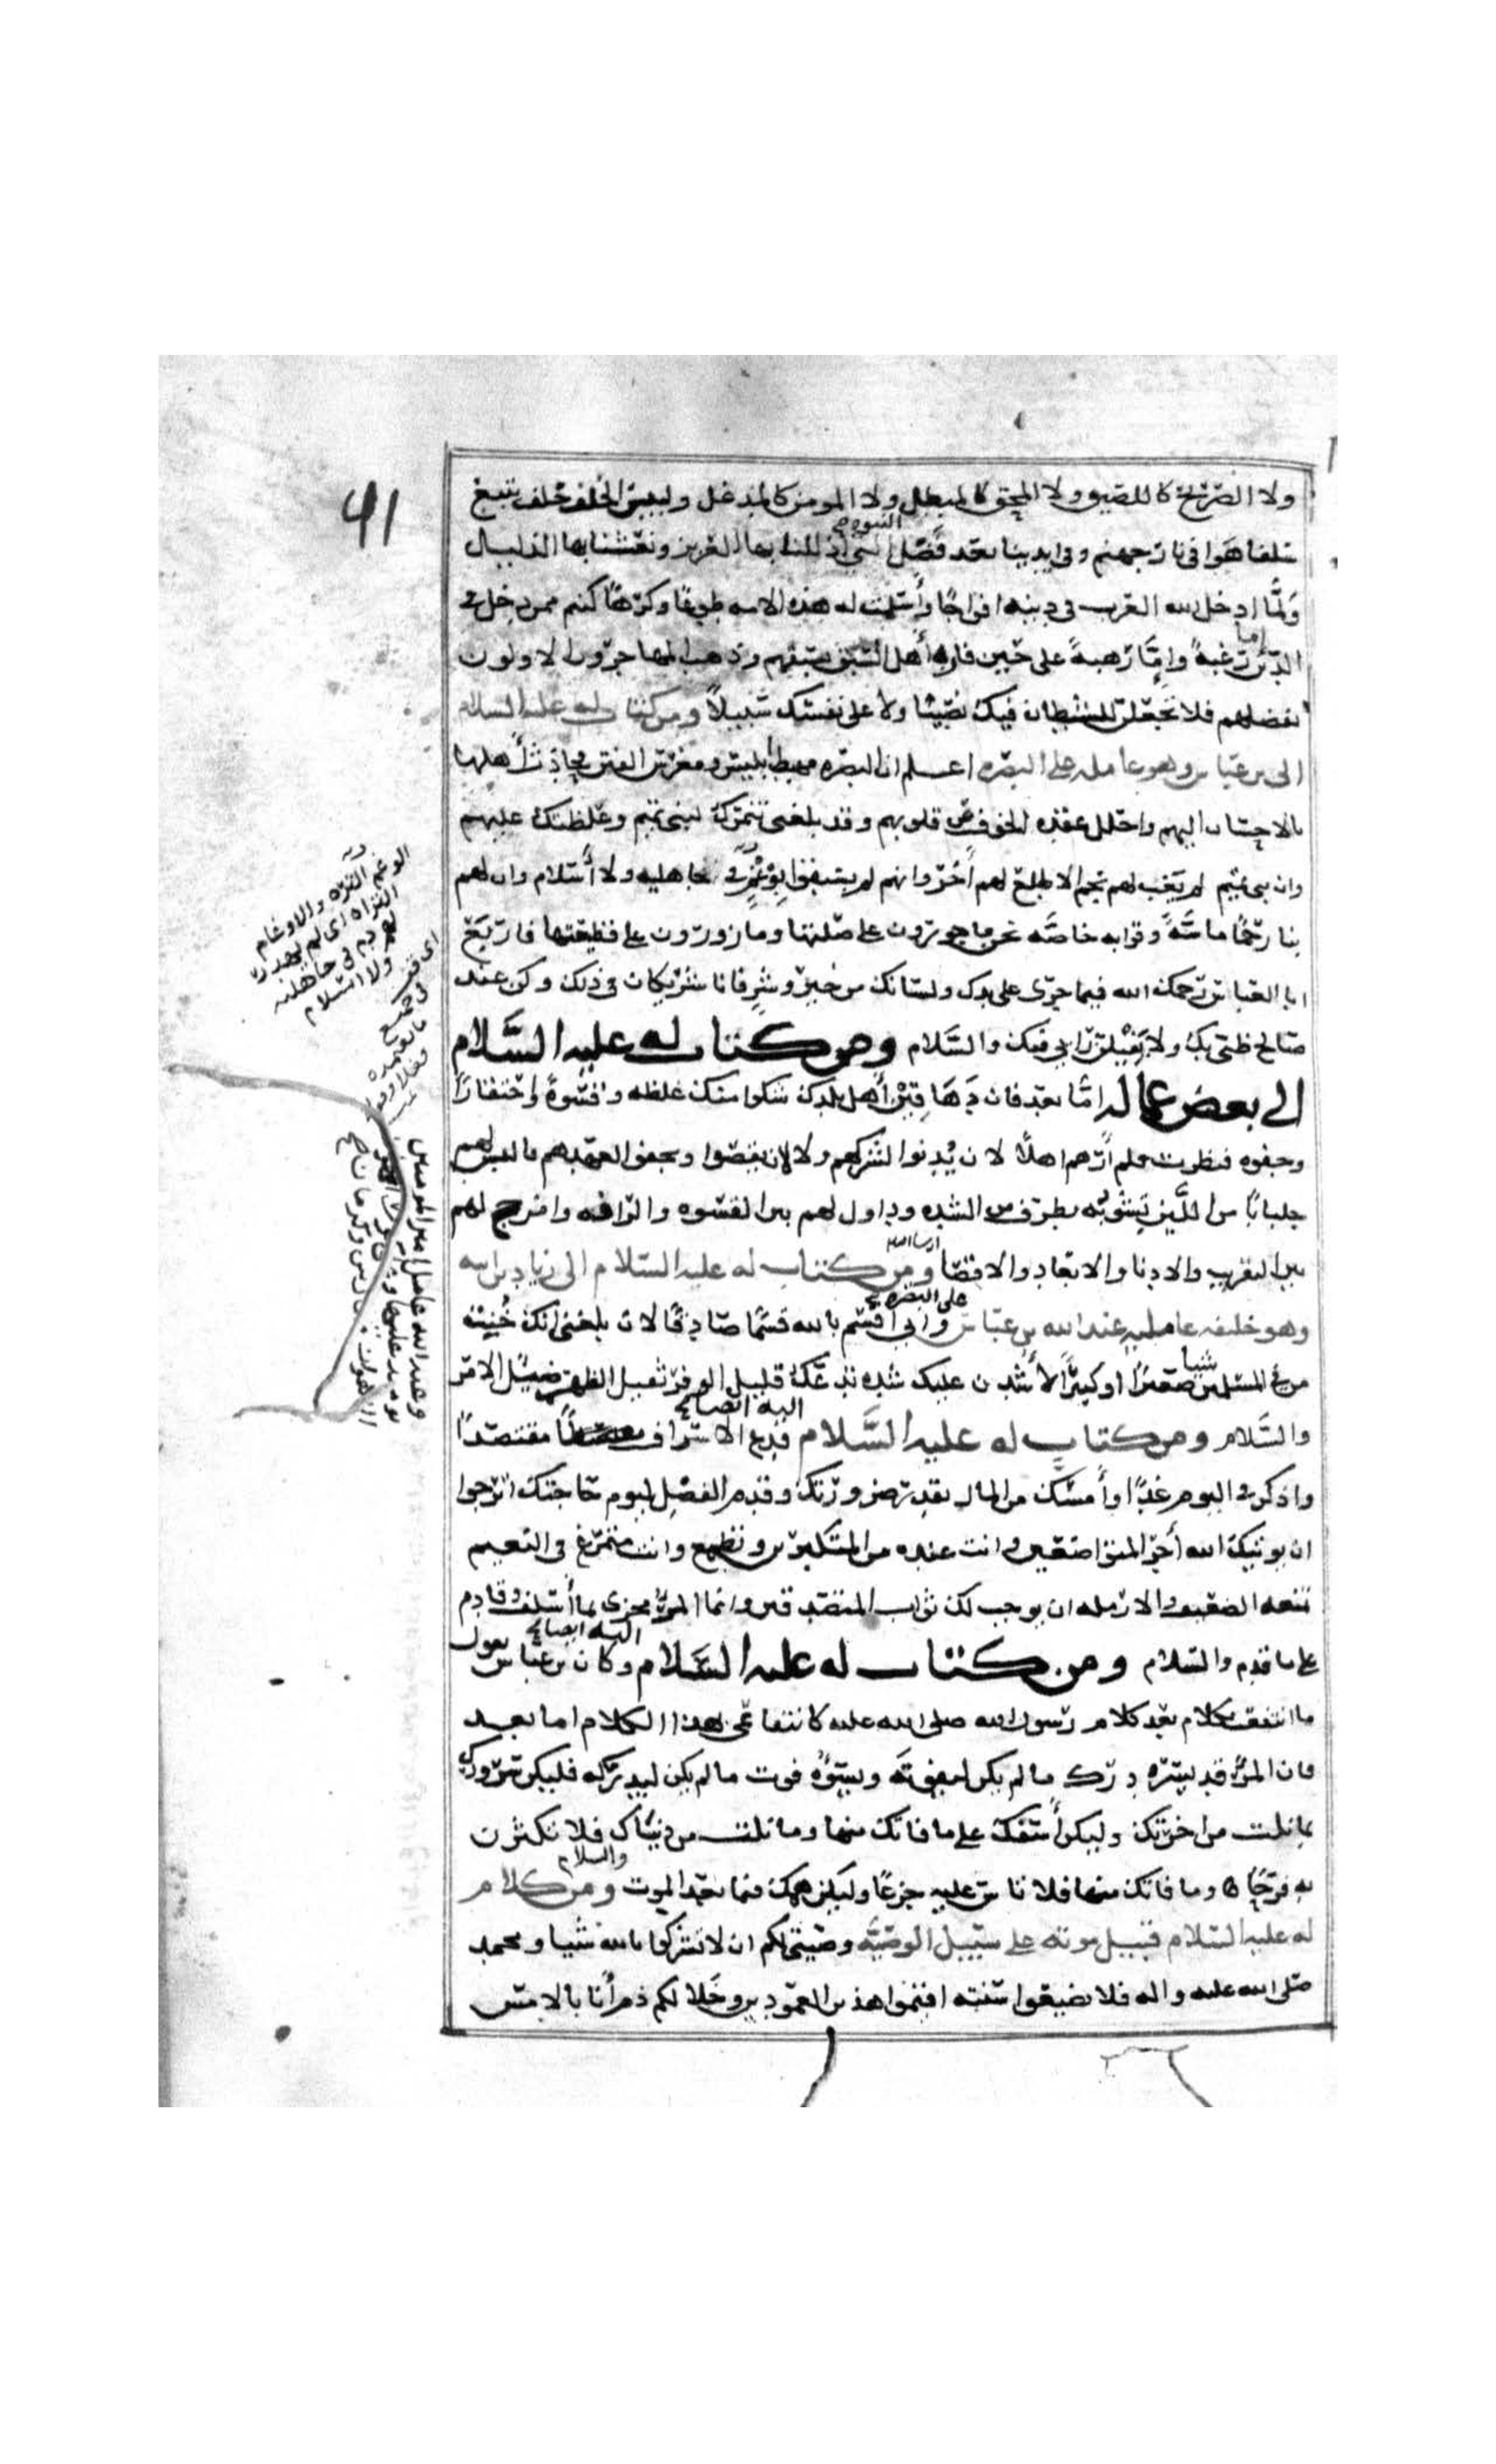 ولا الصريح كاللصيق ولا المحق كالمبطل ولا المومن كالمدغل ولبيس الخلف خلف يتبع
سلفا هوا في نار جهنم وفي ايدينا بعد فضل النبوه التي اذللنا بها العزيز ونعشنا بها الذليل
ولما ادخل الله العرب في دينه افواجا وأسلمت له هذه الامه طوعا وكرها كنتم ممن دخل في
الدين اما رغبة وإما رهبة على حين فاز أهل السبق بسبقهم وذهب المهاجرون الاولون
بفضلهم فلا تجعلن للشيطان فيك نصيبا ولا على نفسك سبيلا ومن كتاب له عليه السلام
الى بن عباس وهو عامله على البصره اعلم ان البصره مهبط ابليس ومغرس الفتن فحادث أهلها
بالاحسان اليهم واحلل عقده الخوف عن قلوبهم وقد بلغني تنمرك لبني تميم وغلظتك عليهم
وان بني تميم لم يغب لهم نجم الا طلع لهم أخر وانهم لم يسبقوا بوغم في جاهليه ولا أسلام وان لهم
بنا رحما ماسة وقرابه خاصه نحن ماجورون على صلتها ومازورون على قطيعتها فاربع
ابا العباس رحمك الله فيما جرى على يدك ولسانك من خير وشر فانا شريكان في ذلك وكن عند
صالح ظني بك ولا يفيلن رايي فيك والسلام ومن كتاب له عليه السلام
الى بعض عماله اما بعد فان دهاقين أهل بلدك شكوا منك غلظه وقسوة واحتقارا
وجفوه فنظرت فلم أرهم اهلا لان يدنوا لشركهم ولا لان يقصوا ويجفوا لعهدهم فالبس لهم
جلبابا من اللين تشوبه بطرف من الشده وداول لهم بين القسوه والرافه وامزج لهم
بين التقريب والادنا والابعاد والاقصا ان شا الله ومن كتاب له عليه السلام الى زياد بن ابيه
وهو خليفه عامله عبد الله بن عباس على البصره واني اقسم بالله قسما صادقا لان بلغني انك خنت
من في المسلمين شيا صغيرا او كبيرا لأشدن عليك شده تدعك قليل الوفر ثقيل الظهر ضئيل الامر
والسلام ومن كتاب له عليه السلام اليه ايضا فدع الاسراف مقتصدا
واذكر في اليوم غدا وأمسك من المال بقدر ضرورتك وقدم الفضل ليوم حاجتك اترجوا
ان يوتيك الله أجر المتواضعين وانت عنده من المتكبرين وتطمع وانت متمرغ في النعيم
تمنعه الضعيف والارمله ان يوجب لك ثواب المتصدقين وانما المرء مجزى بما أسلف وقادم
على ما قدم والسلام ومن كتاب له عليه السلام اليه ايضا وكان بن عباس يقول
ما انتفعت بكلام بعد كلام رسول الله صلى الله عليه كانتفاعي بهذا الكلام اما بعد
فان المرء قد يسره درك ما لم يكن ليفوته ويسؤه فوت ما لم يكن ليدركه فليكن سرورك
بما نلت من اخرتك وليكن أسفك على ما فاتك منها وما نلت من دنياك فلا تكثرن
به فرحا وما فاتك منها فلا تاس عليه جزعا وليكن همك فيما بعد الموت والسلام ومن كلام
له عليه السلام قبيل موته على سبيل الوصيه وصيتي لكم ان لا تشركوا بالله شيا ومحمد
صلى الله عليه واله فلا تضيعوا سنته اقيموا هذين العمودين وخلاكم ذم أنا بالامس
الوغم التره والاوغام
الترات اي لم يهدر
لهم دم في جاهليه
ولا اسلام
وعبد الله عامل امير المومنين
يومئذ عليها